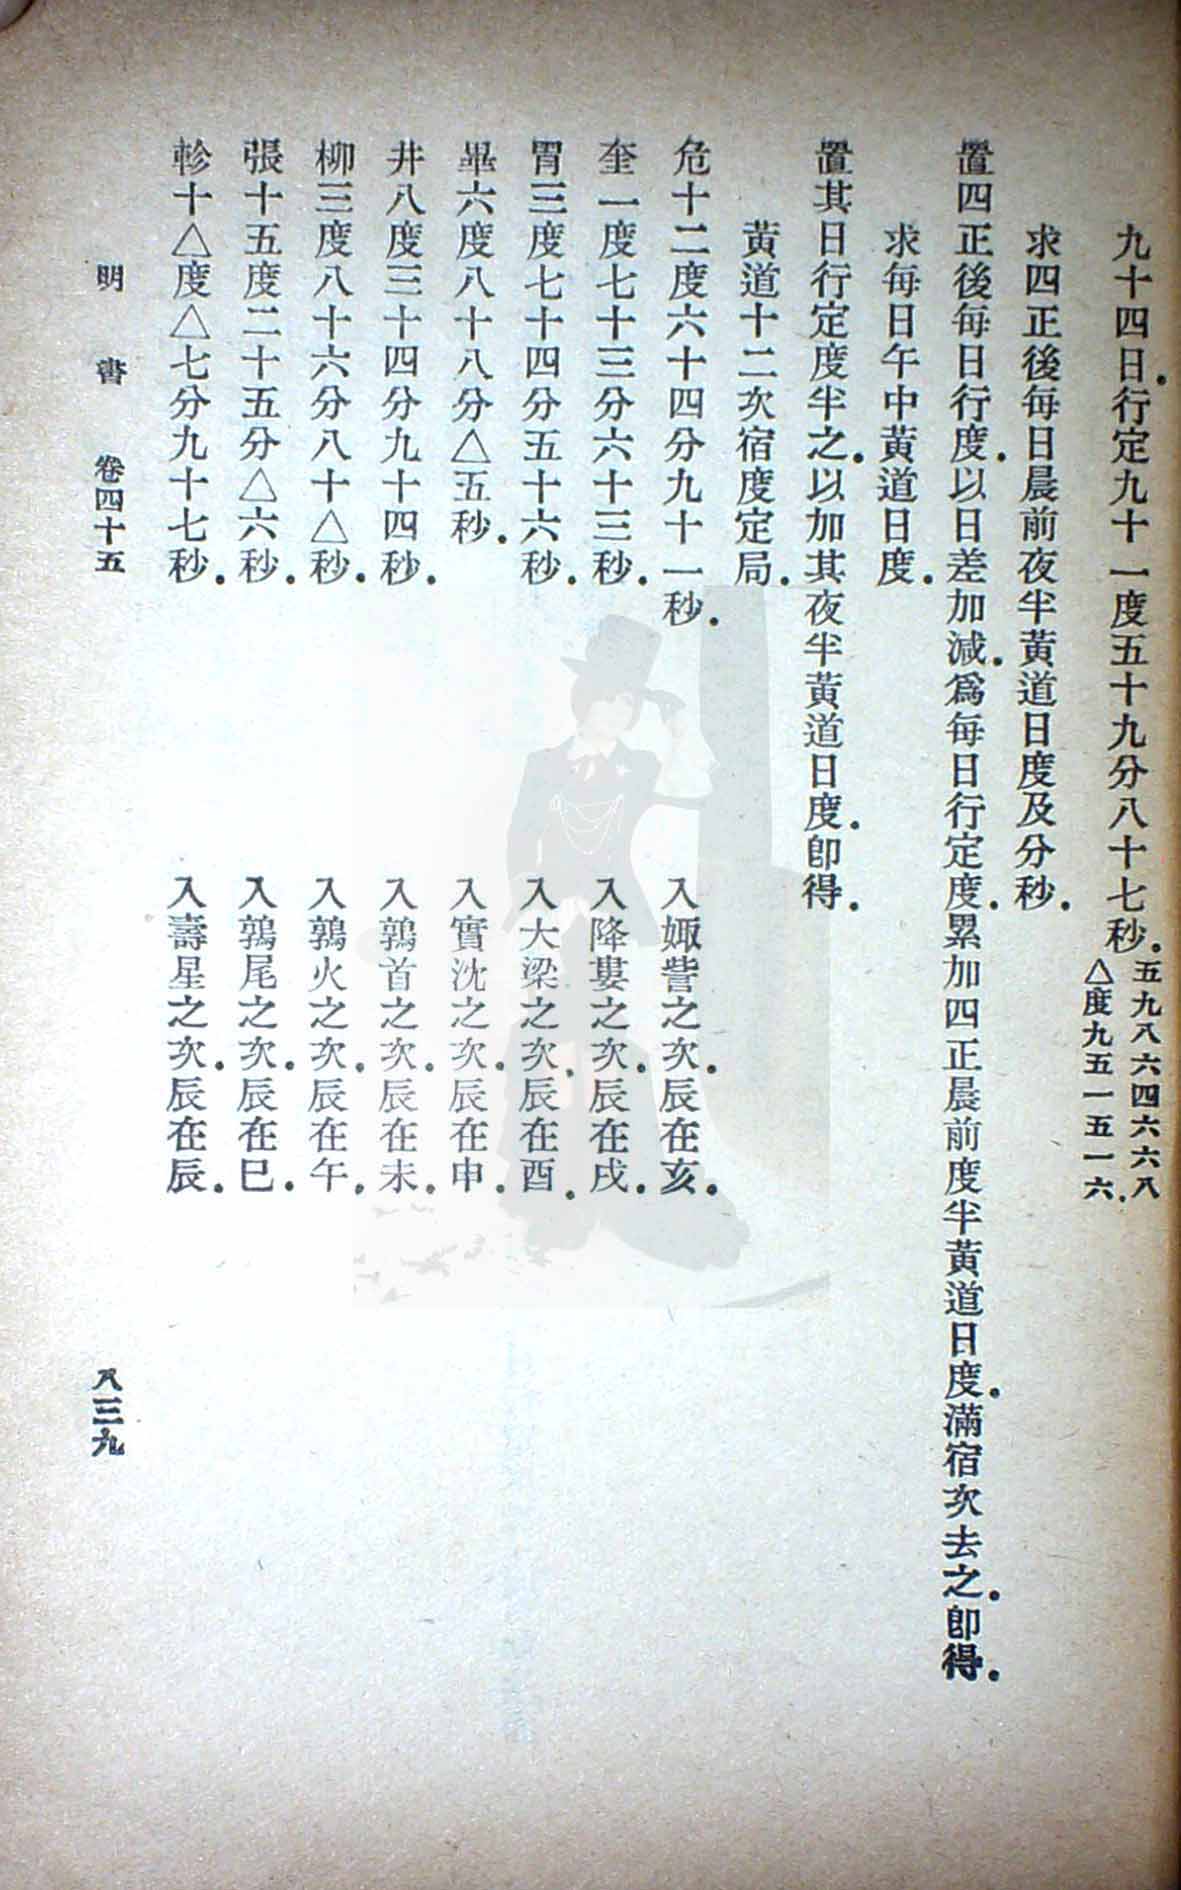 九十四日.行定九十一度五十九分八十七秒.五九八六四六六八
△度九五一五一六.
求四正後每日晨前夜半黃道日度及分秒.
置四正後每日行度.以日差加減.爲每日行定度.累加四正晨前度半黃道日度.滿宿次去之.卽得.
求每日午中黃道日度.
置其日行定度半之.以加其夜半黃道日度.卽得.
黃道十二次宿度定局.
危十二度六十四分九十一秒. 入娵訾之次.辰在亥.
奎一度七十三分六十三秒. 入降婁之次.辰在戌.
胃三度七十四分五十六秒. 入大梁之次.辰在酉.
畢六度八十八分△五秒. 入實沈之次.辰在申.
井八度三十四分九十四秒. 入鶉首之次.辰在未.
柳三度八十六分八十△秒. 入鶉火之次.辰在午.
張十五度二十五分△六秒. 入鶉尾之次.辰在巳.
軫十△度△七分九十七秒. 入壽星之次.辰在辰.
明書 卷四十五 八三九